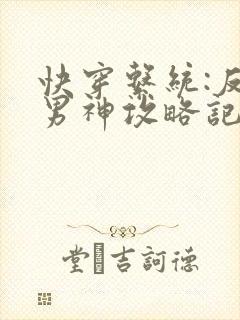 快穿繫統:反
男神攻略記
堂吉訶德